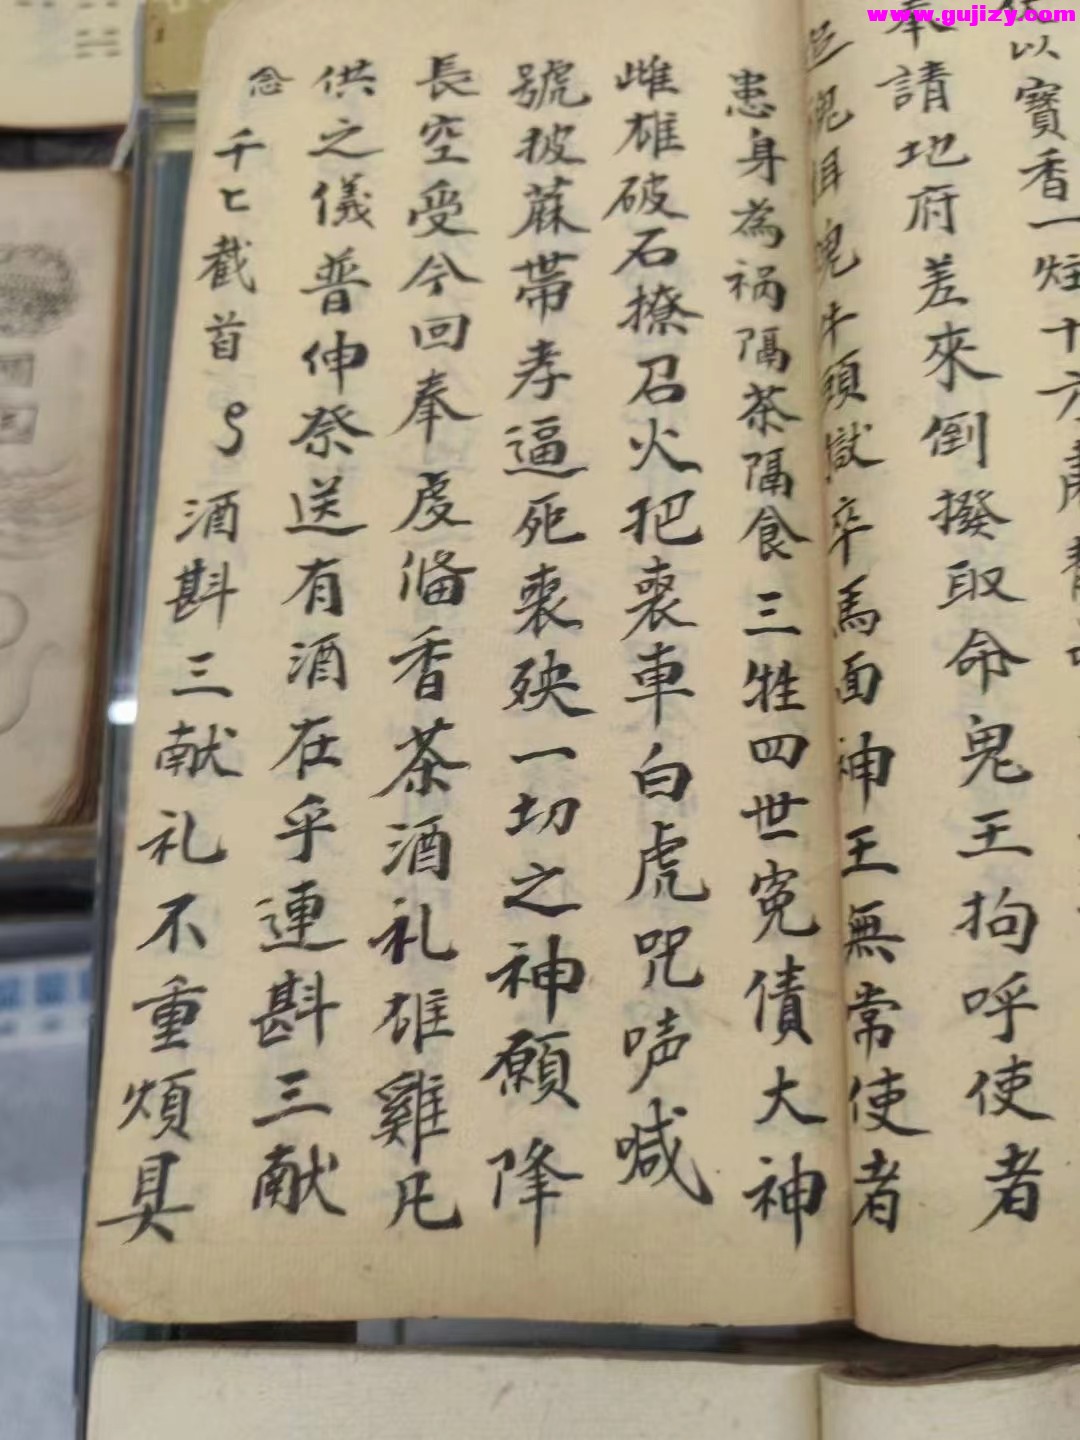 www.gujizy.com
以寶香一炷十方肅
奉請地府差來倒撥取命鬼王拘呼使者
魂 魄牛頭獄卒馬面神王無常使者
患身為祸隔茶隔食三牲四世冤債大神
雌雄破石撩召火把喪車白虎咒声喊
號披蔴带孝逼死喪殃一切之神願降
長空受今回奉虔俻香茶酒礼雄雞凡
供之儀普伸祭送有酒在乎連斟三献
念千七截首 酒斟三献礼不重煩具